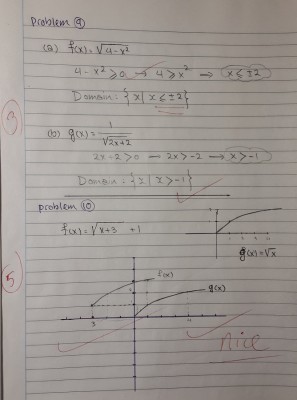 Problem ⑨
(a) f(x) = √4-x²
4-x² ≥ 0 → 4 ≥ x² → x ≤ ±2
Domain: {x | x ≤ ±2}
3
(b) g(x) = 1/√2x+2
2x-2 > 0 — 2x > -2 → x > -1
Domain: {x | x > -1}
problem ⑩
f(x) = √x+3 +1
g(x) = √x
5
f(x)
g(x)
3
nice